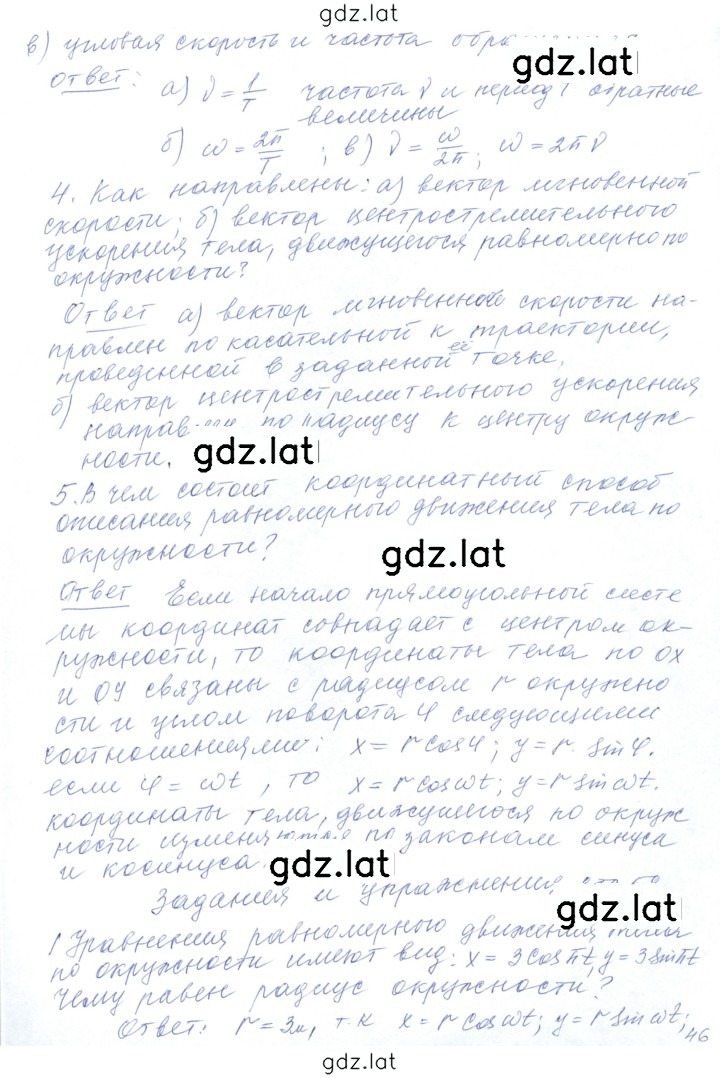 gdz.lat
в) угловая скорость и частота обра
gdz.lat
Ответ: а) ν = 1/T частота ν и период T обратные
величины
б) ω = 2π/T ; в) ν = ω/2π ; ω = 2πν
4. Как направлены: а) вектор мгновенной
скорости; б) вектор центростремительного
ускорения тела, движущегося равномерно по
окружности?
Ответ а) вектор мгновенной скорости на-
правлен по касательной к траектории,
проведенной в заданной её точке.
б) вектор центростремительного ускорения
направ по радиусу к центру окруж-
ности.
gdz.lat
5. В чем состоит координатный способ
описания равномерного движения тела по
окружности?
gdz.lat
Ответ Если начало прямоугольной систе
мы координат совпадает с центром ок-
ружности, то координаты тела по ОХ
и ОУ связаны с радиусом r окружно
сти и углом поворота φ следующими
соотношениями: x = r cosφ; y = r · sinφ.
если φ = ωt, то x = r cosωt; y = r sinωt.
координаты тела, движущегося по окруж
ности изменя по законам синуса
и косинуса.
gdz.lat
Задания и упражнения
gdz.lat
1 Уравнения равномерного движения
по окружности имеют вид: x = 3cosπt, y = 3sinπt
Чему равен радиус окружности?
Ответ: r = 3м, т.к x = r cosωt; y = r sinωt;
46
gdz.lat